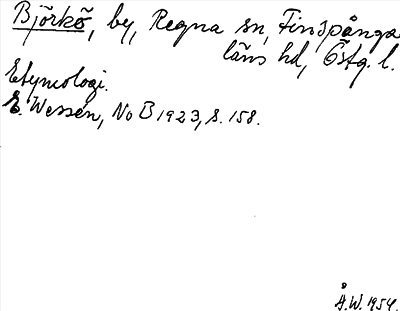 Björkö, by, Regna sn, Finspånga
läns hd, Östg. l.
Etymologi.
E. Wessén, NoB 1923, s. 158.
Å.W. 1954.